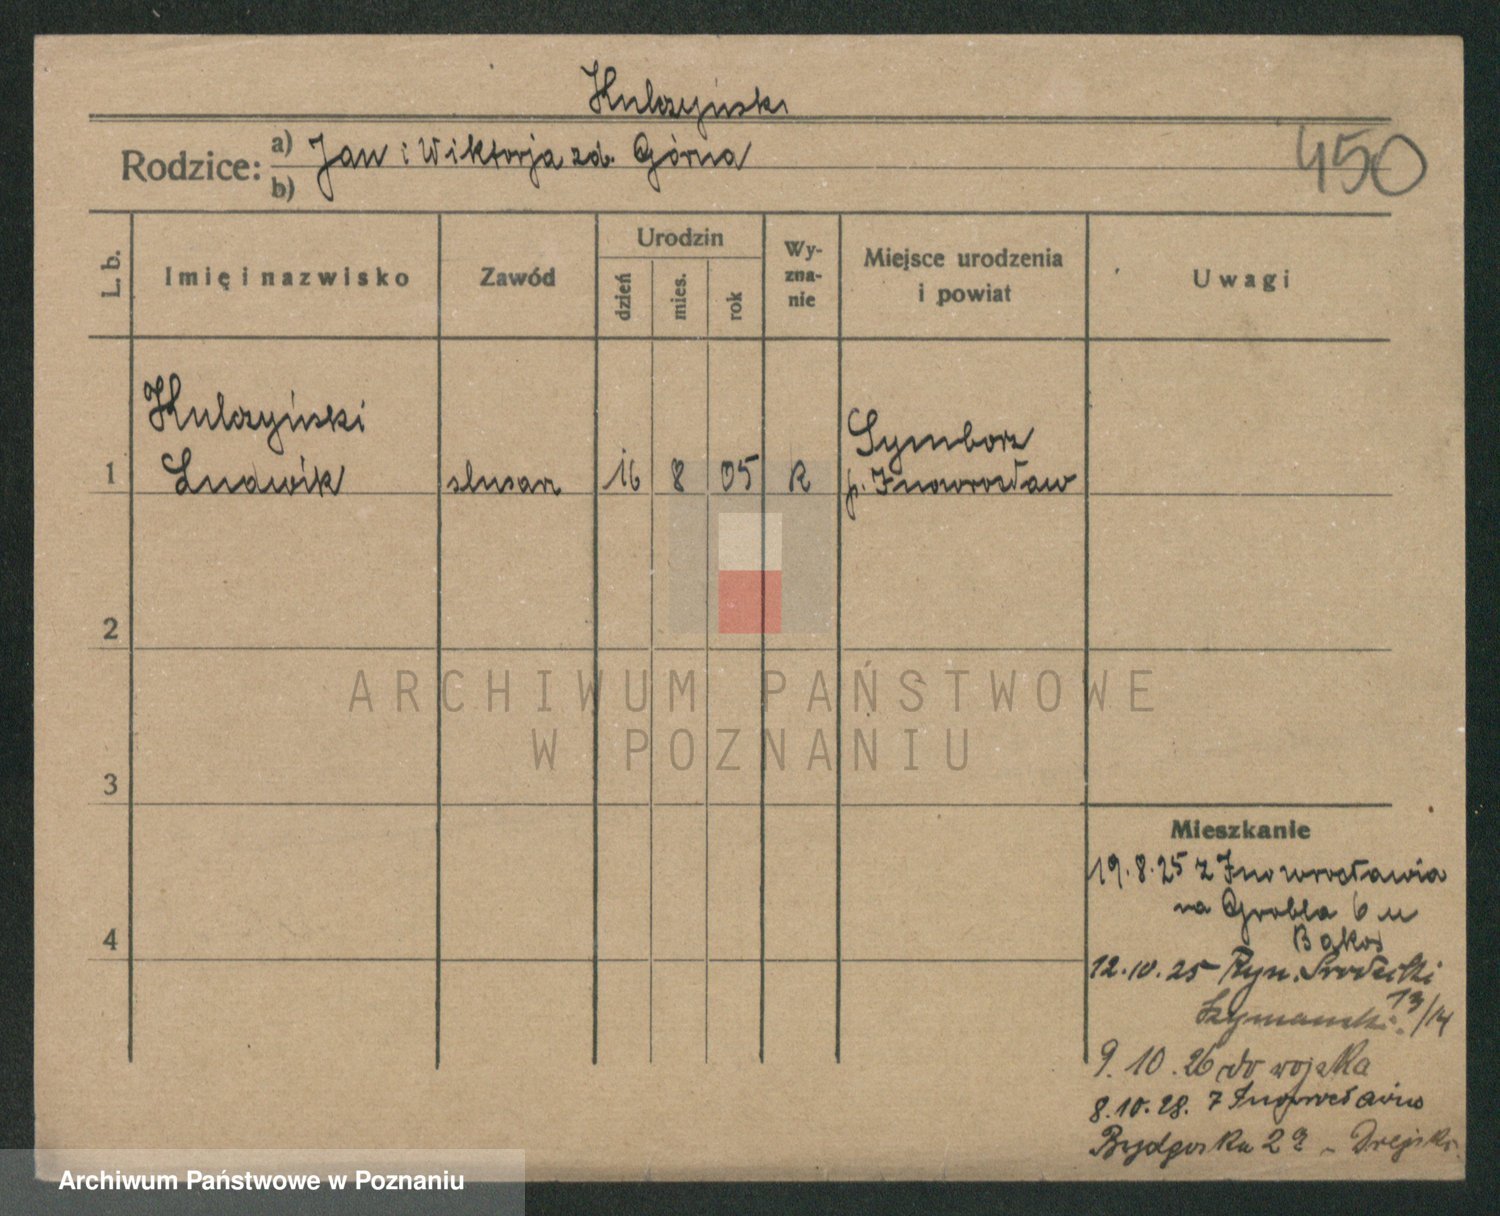 Kulczyński
Rodzice: a) Jan i Wiktorja zd. Górna
b)
450
L. b. Imię i nazwisko Zawód Urodzin dzień mies. rok Wy-zna-nie Miejsce urodzenia i powiat Uwagi
Kulczyński Symborz
1 Ludwik slusarz 16 8 05 k p. Inowrocław
2
ARCHIWUM PAŃSTWOWE
W POZNANIU
3
Mieszkanie
19.8.25 z Inowrocławia
na Grobla 6 u
Bąkos
4
12.10.25 Ryn. Srodecki
Szymanski 13/14
9.10.26 do wojska
8.10.28. z Inowrocławia
Bydgoska 2 - Drejski
Archiwum Państwowe w Poznaniu